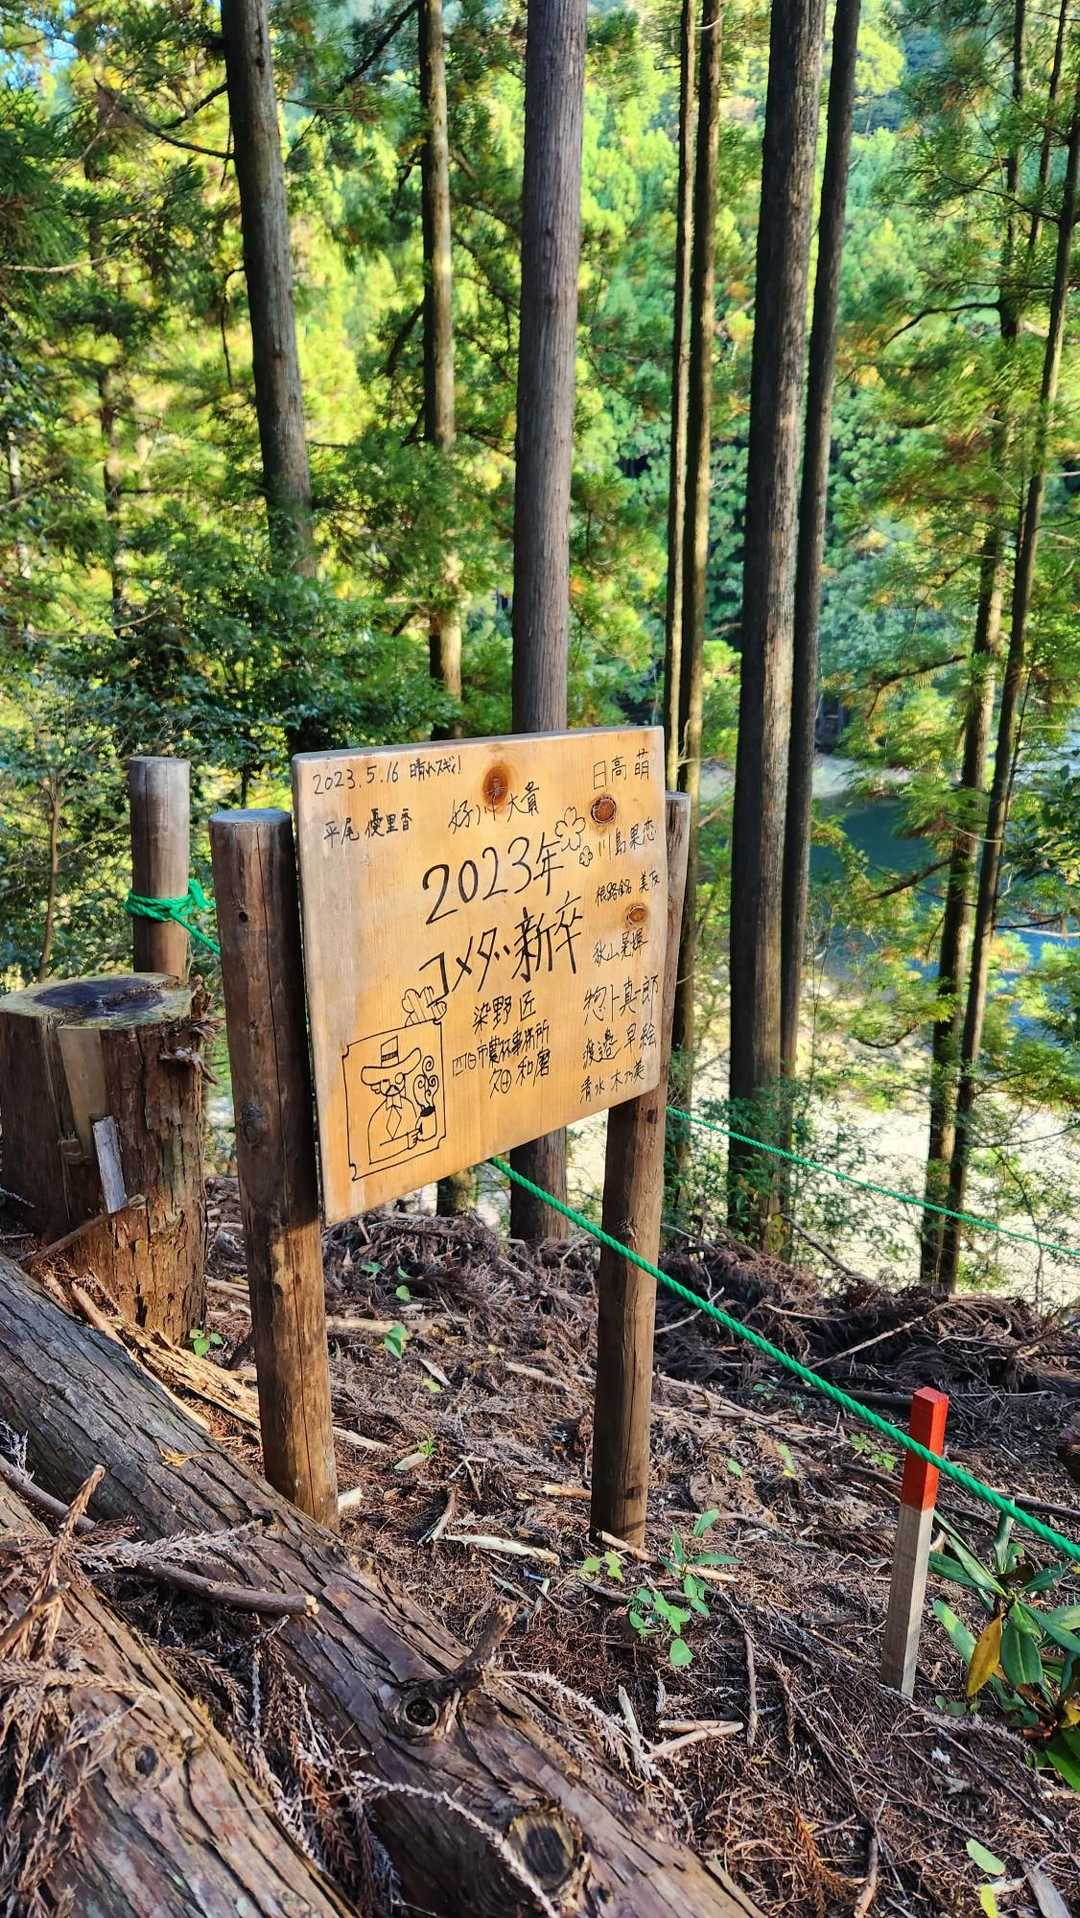 2023.5.16 晴れスギ!
平尾 優里香
好川 大貴
日高 萌
2023年
コメダ新卒
川島 果恋
美友
秋山 晃輝
惣卜真一郎
渡邉 早絵
清水 木乃美
染野 匠
四日市農林事務所
畑 和磨